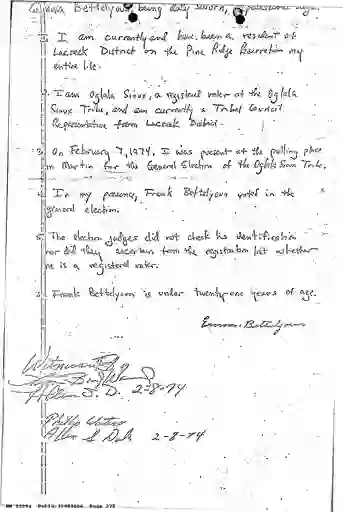 Bettelyoun being duly sworn,
1. I am currently and have been a resident of
Lacreek District on the Pine Ridge Reservation my
entire life.
2. I am Oglala Sioux, a registered voter of the Oglala
Sioux Tribe, and am currently a Tribal Council
Representative from Lacreek District.
3. On February 7, 1974, I was present at the polling place
in Martin for the General Election of the Oglala Sioux Tribe.
4. In my presence, Frank Bettelyoun voted in the
general election.
5. The election judges did not check his identification
nor did they ascertain from the registration list whether
he is a registered voter.
6. Frank Bettelyoun is under twenty-one years of age.
Bettelyoun
2-8-74
2-8-74